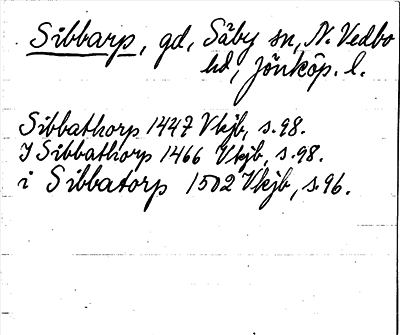 Sibbarp, gd, Säby sn, N. Vedbo
hd, Jönköp. l.
Sibbathorp 1447 Vkjb, s. 98.
I Sibbathorp 1466 Vkjb, s. 98.
i Sibbatorp 1502 Vkjb, s. 96.